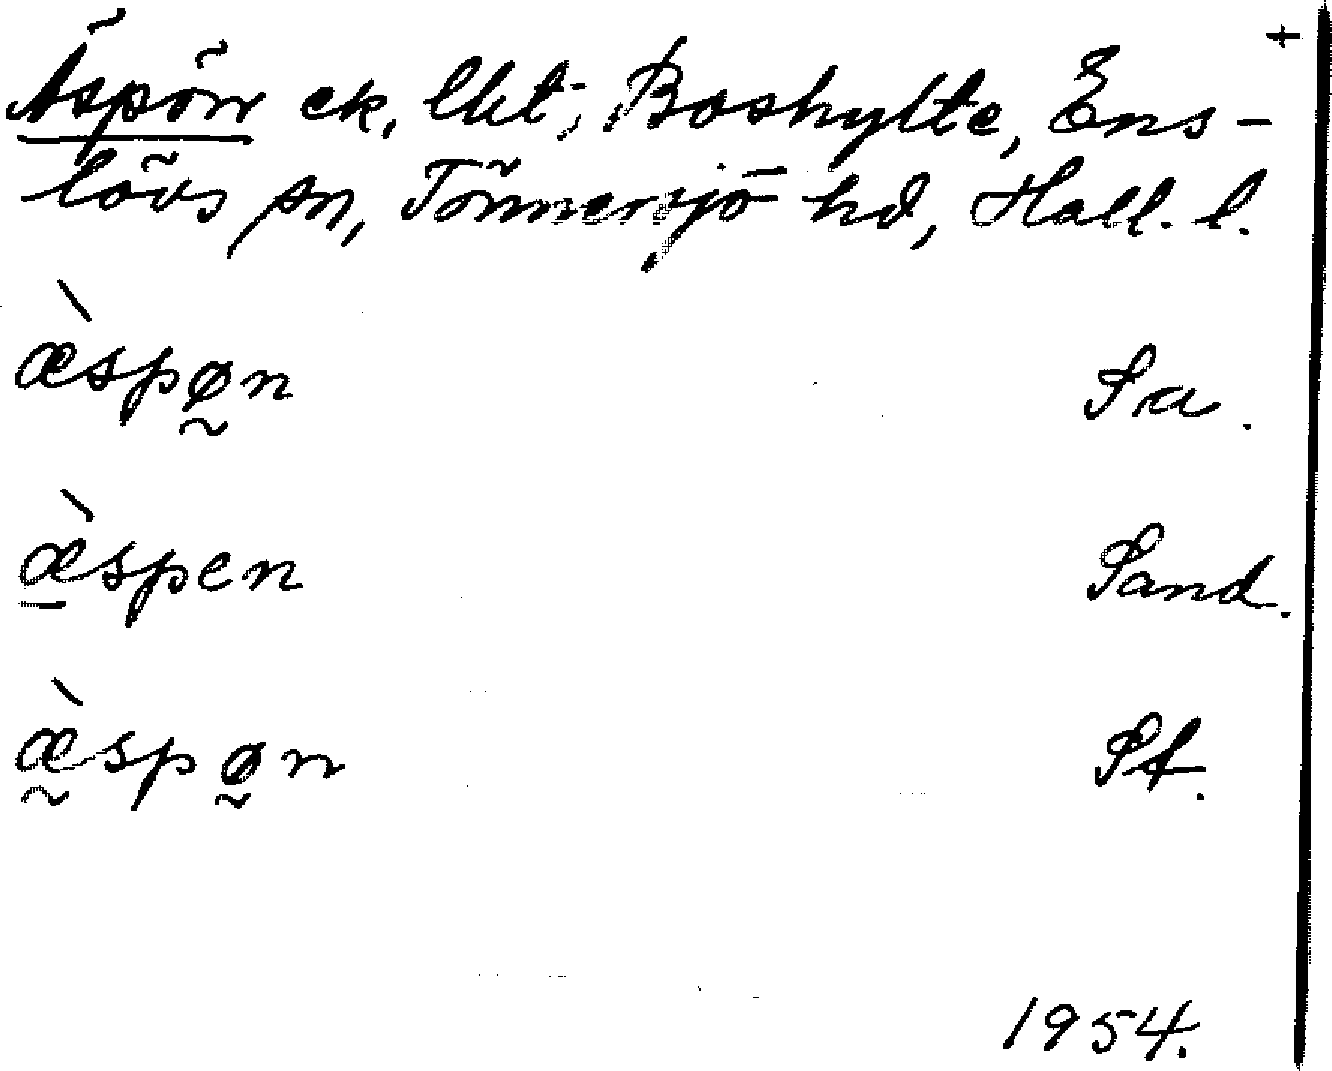 +
Äspörr ek, lht; Boshylte, Ens-
lövs sn, Tönnersjö hd, Hall. l.
æ̀spø̰n Sa.
æ̠̀spen Sand.
æ̰̀spø̰n St.
1954.